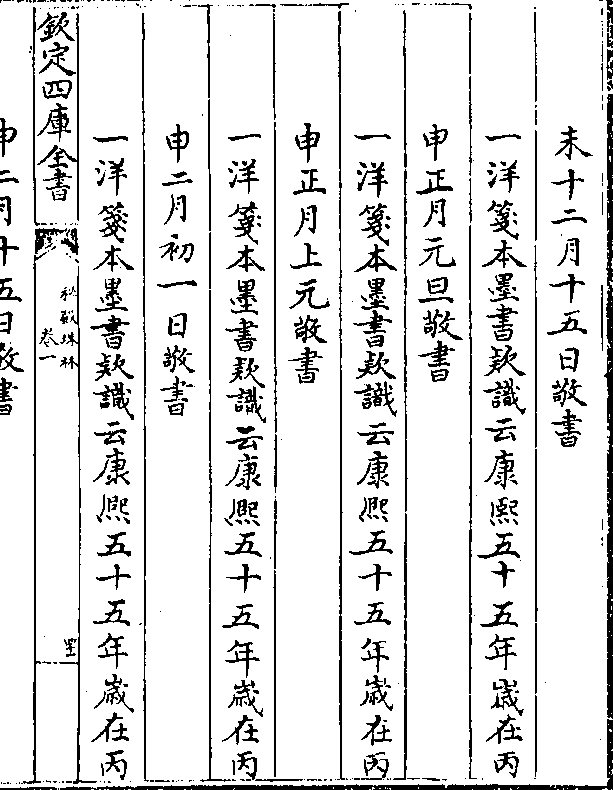 未十二月十五日敬書
一洋箋本墨書款識云康熙五十五年歲在丙
申正月元旦敬書
一洋箋本墨書款識云康熙五十五年歲在丙
申正月上元敬書
一洋箋本墨書款識云康熙五十五年歲在丙
申二月初一日敬書
一洋箋本墨書款識云康熙五十五年歲在丙
欽定四庫全書
秘殿珠林
卷一
申二月十五日敬書